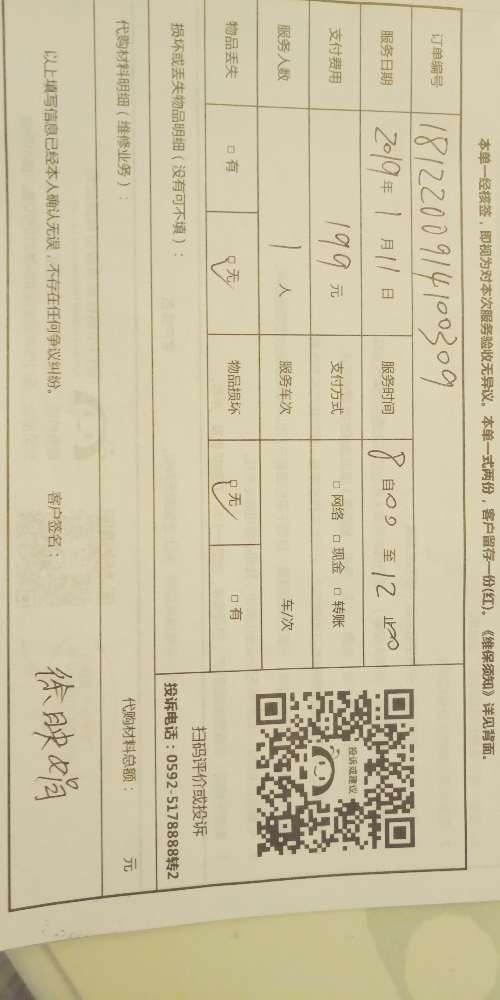 本单一经核签，即视为对本次服务验收无异议。本单一式两份，客户留存一份(红)。《维保须知》详见背面。
订单编号 181220091410309
服务日期 2019年 1月 11日 服务时间 8自00 至 12止00
支付费用 199元 支付方式 □网络 □现金 □转账
服务人数 1 人 服务车次 车/次
物品丢失 □有 □无✓ 物品损坏 □无✓ □有
损坏或丢失物品明细（没有可不填）：
扫码评价或投诉
投诉电话：0592-5178888转2
投诉或建议
代购材料明细（维修业务）： 代购材料总额： 元
以上填写信息已经本人确认无误，不存在任何争议纠纷。 客户签名： 徐映